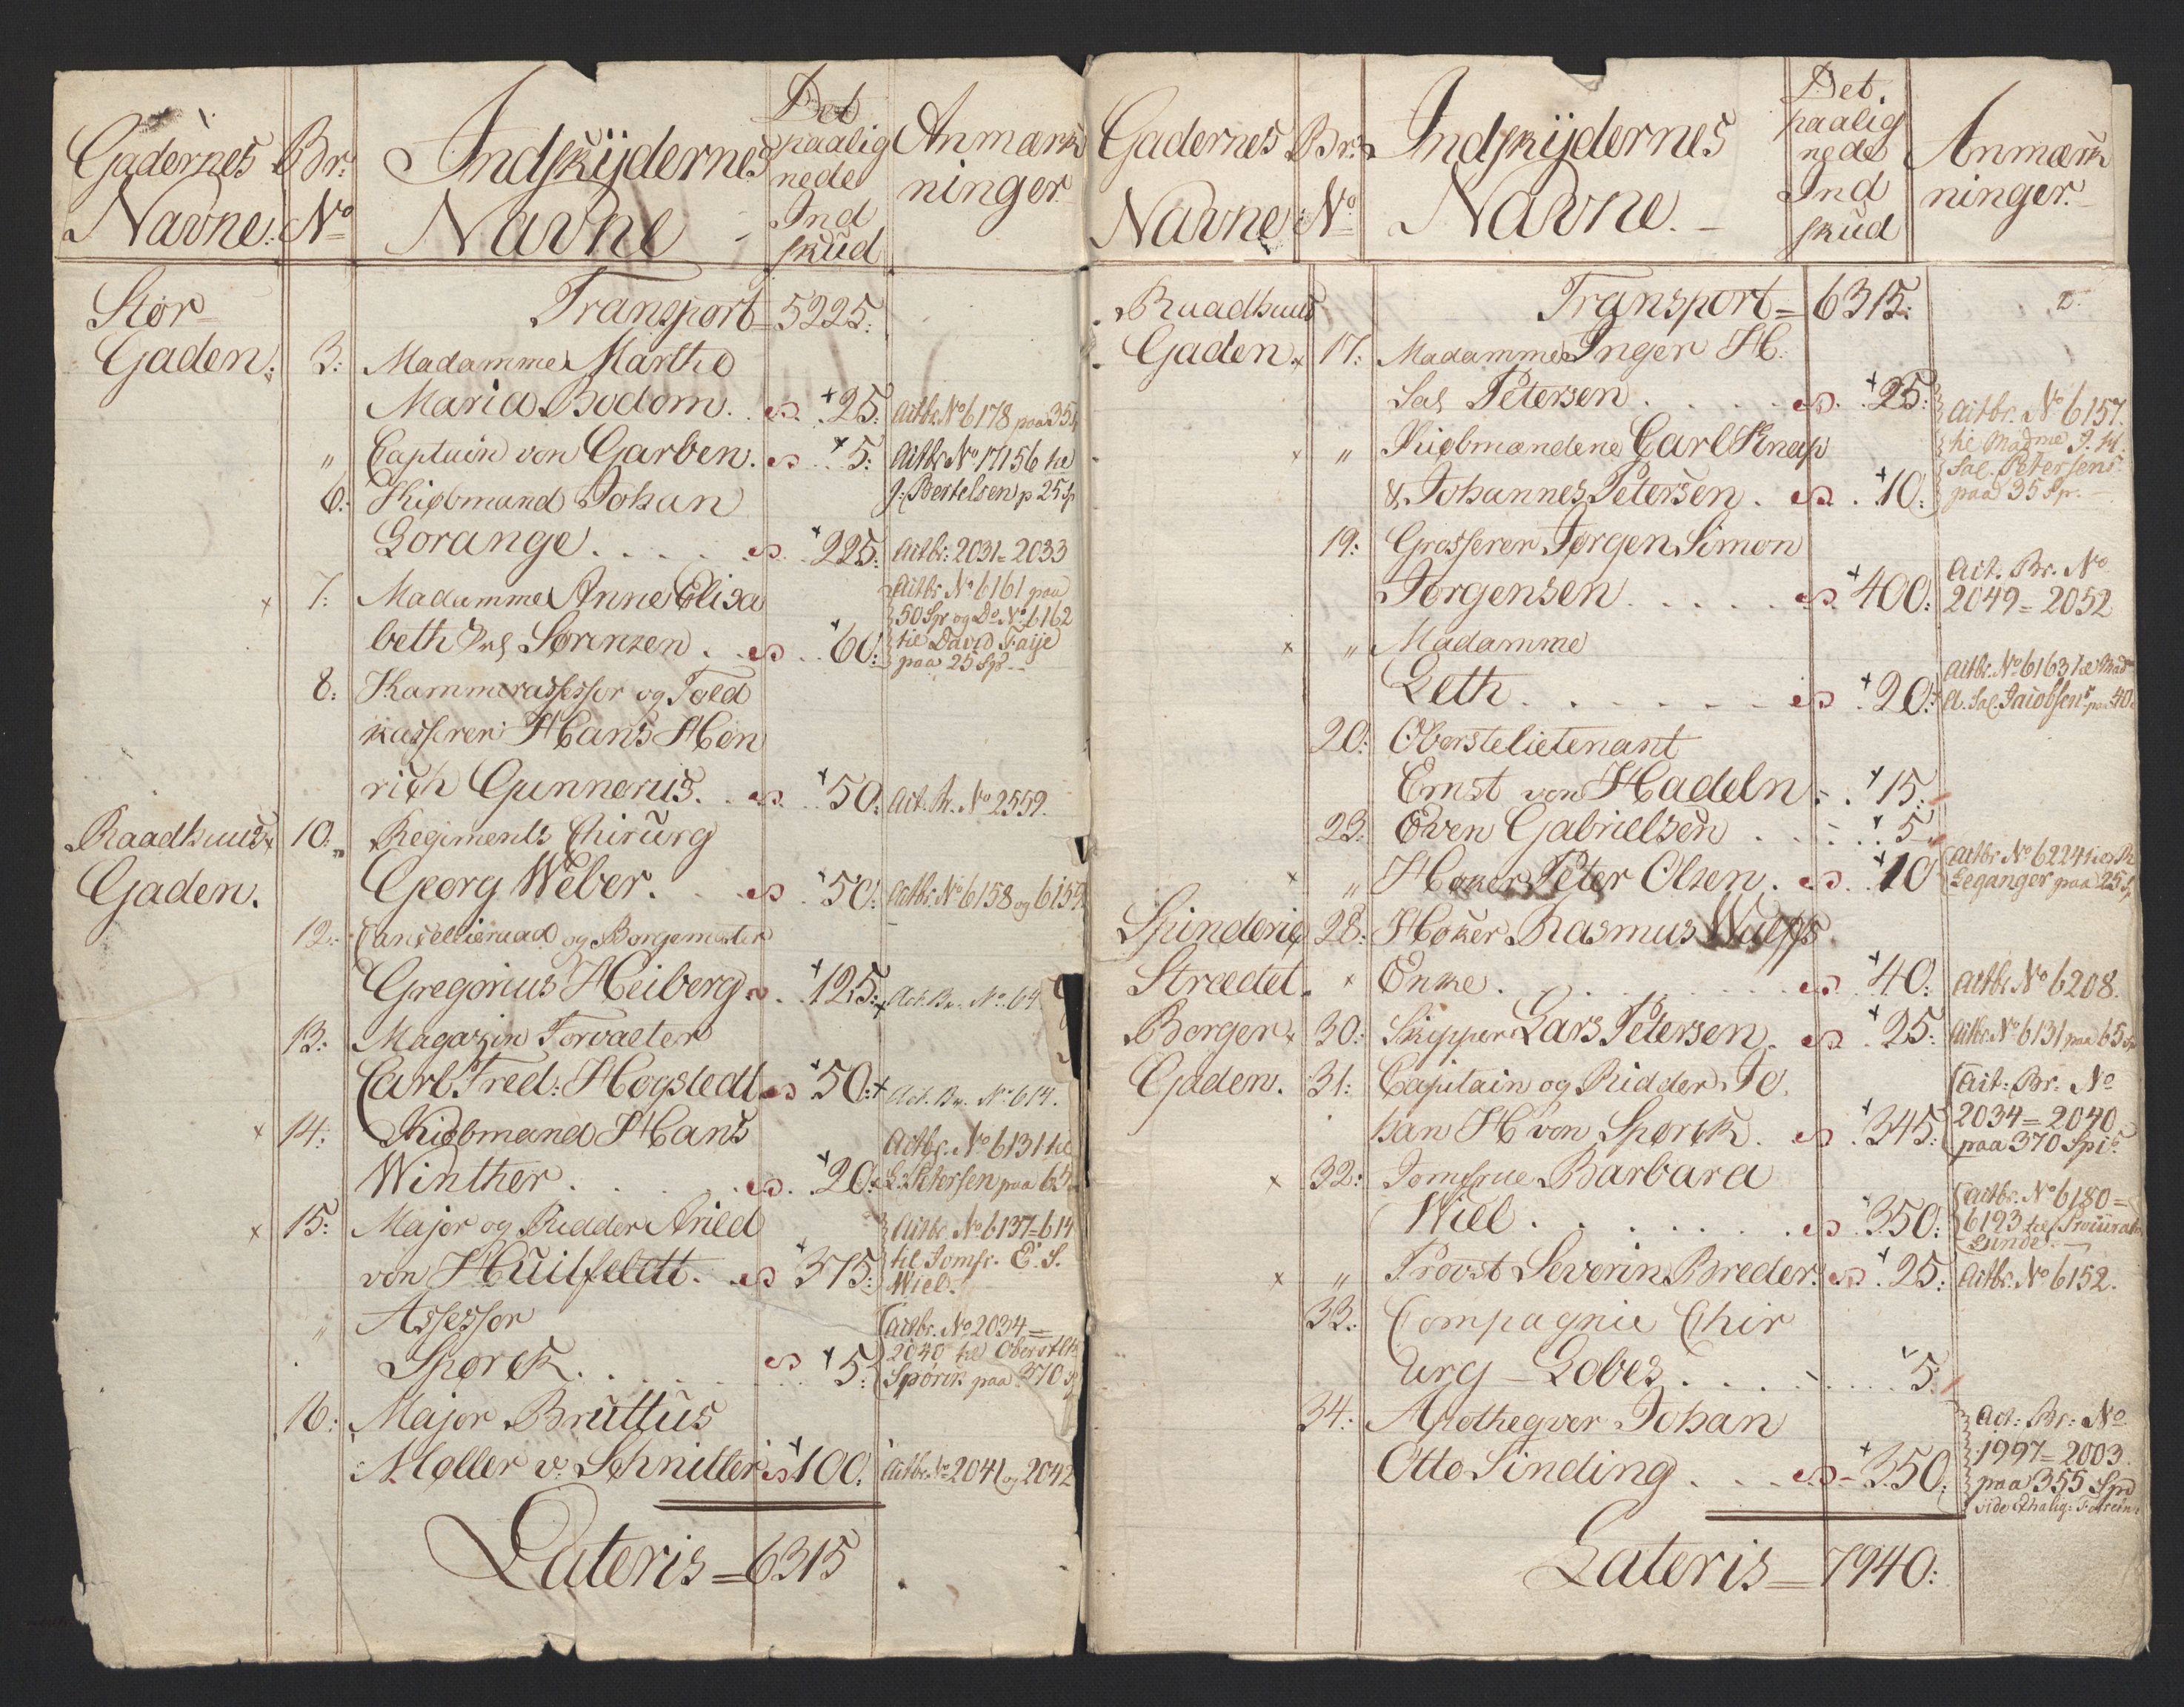 Gadernes
Navne.
Br:
No
Indskÿdernes
Navne
Det
paalig
nede
Ind
skud
Anmærk
ninger
Stor
Gaden.
Transport = 5225.
3: Madamme Marthe
Maria Bodom. 25: Actbr. No 6178 paa 35
" Captain von Garben. 5: Actbr No 17156 til
J: Bertelsen p 25 Sp
6: Kiøbmand Johan
Lorange. 225: Actbr: 2031 = 2033
7: Madamme Anne Elisa
beth Sal Sørenzen. 60:
Actbr No 6161 paa
50 Spr og Do No 6162
til David Faÿe
paa 25 Spr
8: Kammerassessor og Told
kasserer Hans Hen
rich Gunnerus. 50: Act. Br. No 2559.
Raadhuus
Gaden.
10: Regiments Chirurg
Georg Weber. 50: Actbr. No 6158 og 6159
12: Cancellieraad og Borgemester
Gregorius Heiberg. 125: Act. Br. No. 64
13: Magazin Forvalter
Carl Fred: Hogstedt 50: Act. Br. No. 614.
14: Kiøbmand Hans
Winther. 20:
Actbr. No 6131 til
L. Petersen paa 65
15: Major og Ridder Arild
von Huitfeldt. 375:
Actbr. No 6137 = 614
til Jomfr. E. S.
Wiel.
" Assessor
Spørck. 5:
Actbr. No 2034 =
2040 til Oberstlt
Spörck paa 370 Sp
16: Major Bruttus
Møller v. Schnitler 100: Actbr. No 2041 og 2042
Lateris = 6315
Gadernes
Navne
Br:
No
Indskÿdernes
Navne.
Det
paalig
nede
Ind
skud
Anmærk
ninger.
Raadhuus
Gaden.
Transport = 6315:
17: Madamme Inger H.
Sal Petersen. 25:
" Kiøbmændene Carl Knap
& Johannes Petersen. 10:
Actbr. No 6157.
til Madme I. H.
Sal. Petersens
paa 35 Sp.
19: Grosserer Jørgen Simon
Jørgensen. 400:
Act. Br. No
2049 = 2052
" Madamme
Leth. 20:
Actbr. No 6163 til Mad
A. Sal. Jacobsens paa 40
20: Oberstelietenant
Ernst von Hadeln. 15:
23: Even Gabrielsen 5
" Høker Peter Olsen. 10
Actbr No 6224
Leganger paa 25 S
Spinderie
Strædet.
28: Høker Rasmus Wulffs
Enke. 40: Actbr No 6208.
Borger
Gaden.
30: Skipper Lars Petersen. 25: Actbr. No 6131 paa 65 Sp
31: Capitain og Ridder Jo
han H von Spørck. 345:
Act: Br: No
2034 = 2040
paa 370 Spi
32: Jomfrue Barbara
Wiel. 350:
Actbr. No 6180 =
6193 til Procurator
Lunde.
" Provst Severin Breder. 25: Actbr. No 6152.
33: Compagnie Chir
urg Lobes. 5:
34: Apotheqver Johan
Otto Sinding. 350:
Act: Br: No
1997 = 2003.
paa 355 Spd
Lateris = 7940: